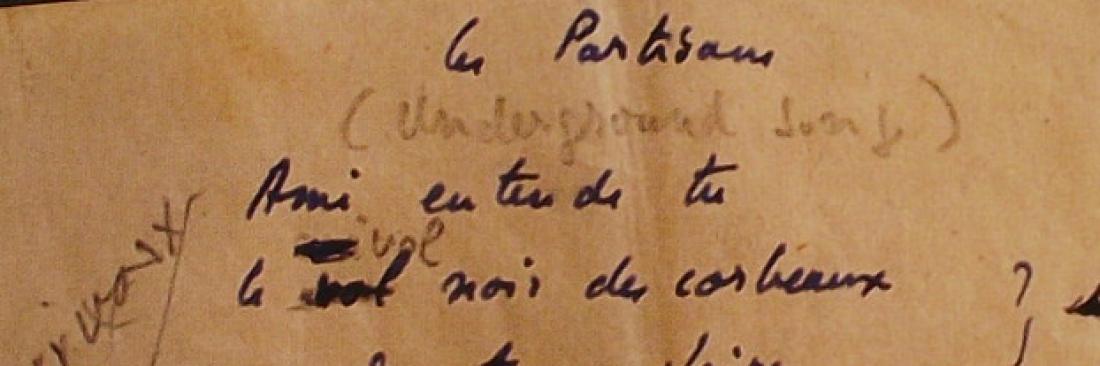 les Partisans
(Underground song)
Ami entends tu
vol
le vol noir des corbeaux ?